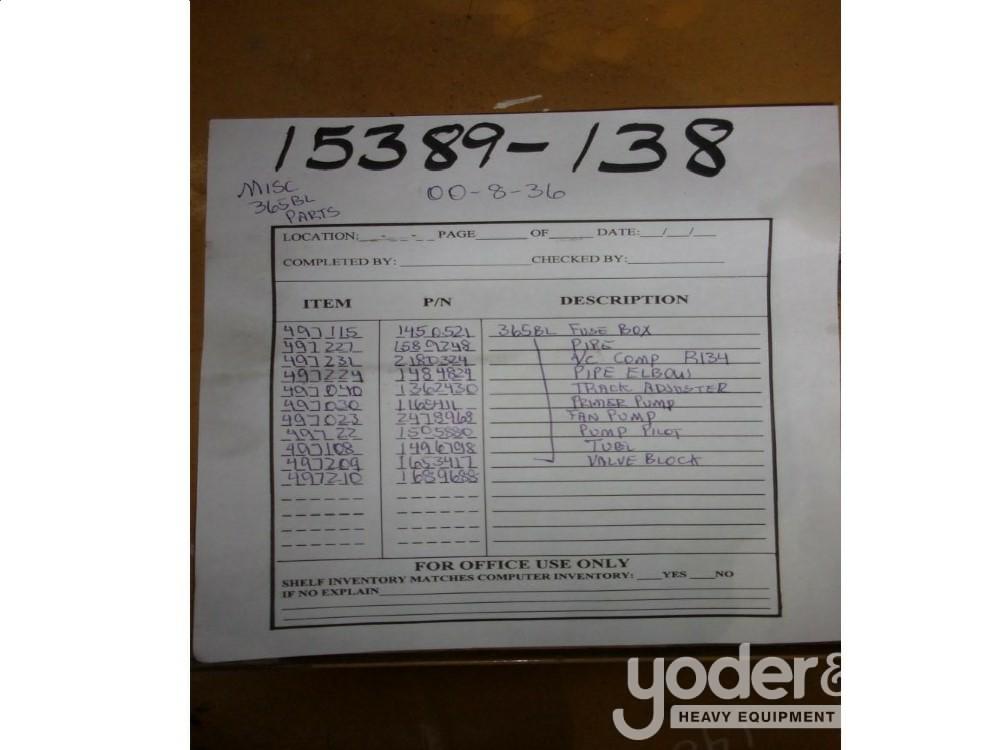 15389-138
MISC
365BL
PARTS
00-8-36
LOCATION:__-_-__ PAGE______ OF_____ DATE:__/__/__
COMPLETED BY: ________________ CHECKED BY:____________
ITEM P/N DESCRIPTION
497115 1450521 365BL FUSE BOX
497227 1689748 PIPE
497231 2180324 A/C COMP R134
497224 1484824 PIPE ELBOW
497040 1362430 TRACK ADJUSTER
497030 PRIMER PUMP
497023 2478968 FAN PUMP
49722 1505880 PUMP PILOT
497108 1496798 TUBE
497209 1653417 VALVE BLOCK
497210 1689688
FOR OFFICE USE ONLY
SHELF INVENTORY MATCHES COMPUTER INVENTORY: ___YES ___NO
IF NO EXPLAIN
yoder&
HEAVY EQUIPMENT